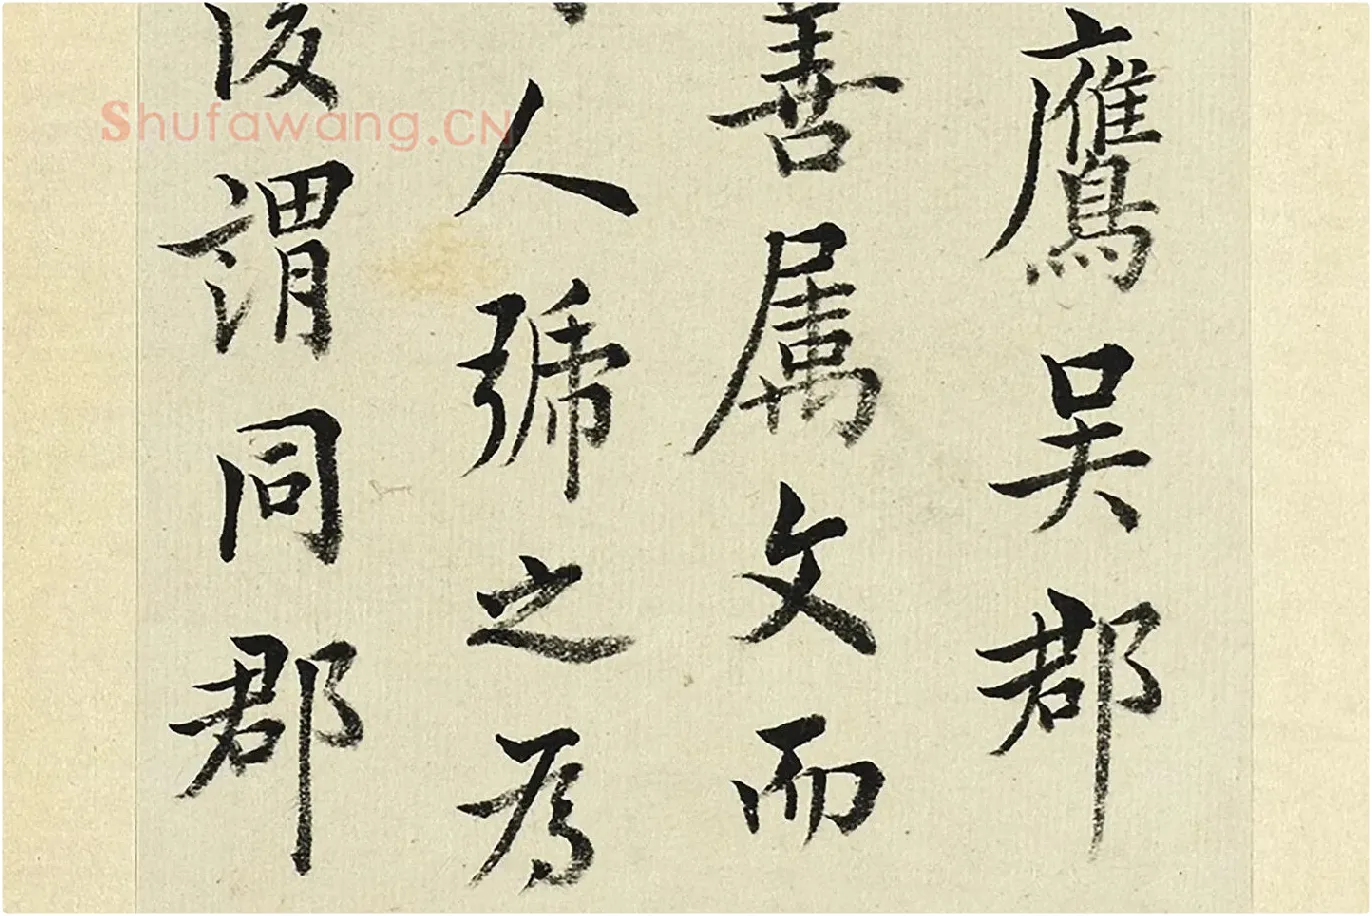 鷹吴郡
善属文而
人號之為
後謂同郡
Shufawang.CN